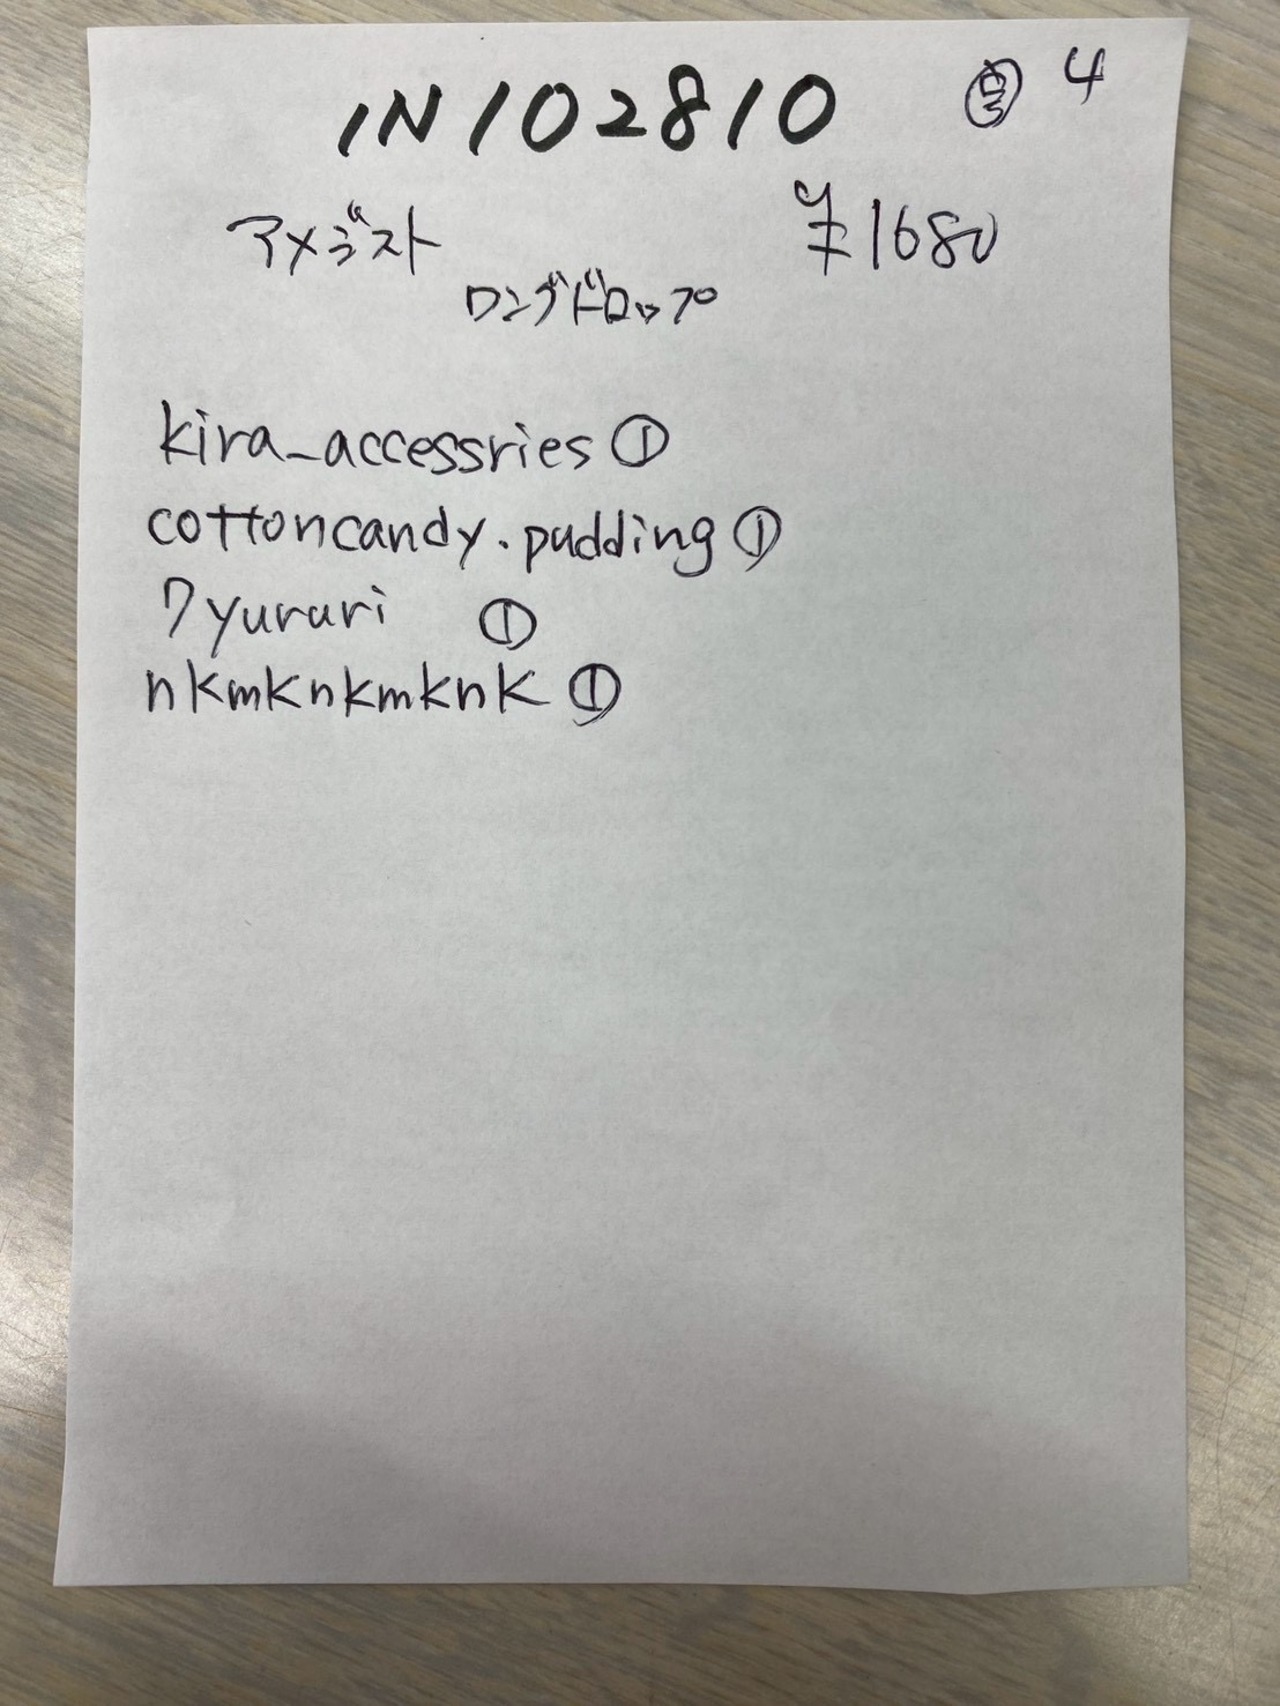 IN102810 4
アメジスト ¥1680
ロングドロップ
kira_accessries ①
cottoncandy.pudding ①
7yururi ①
nkmknkmknk ①